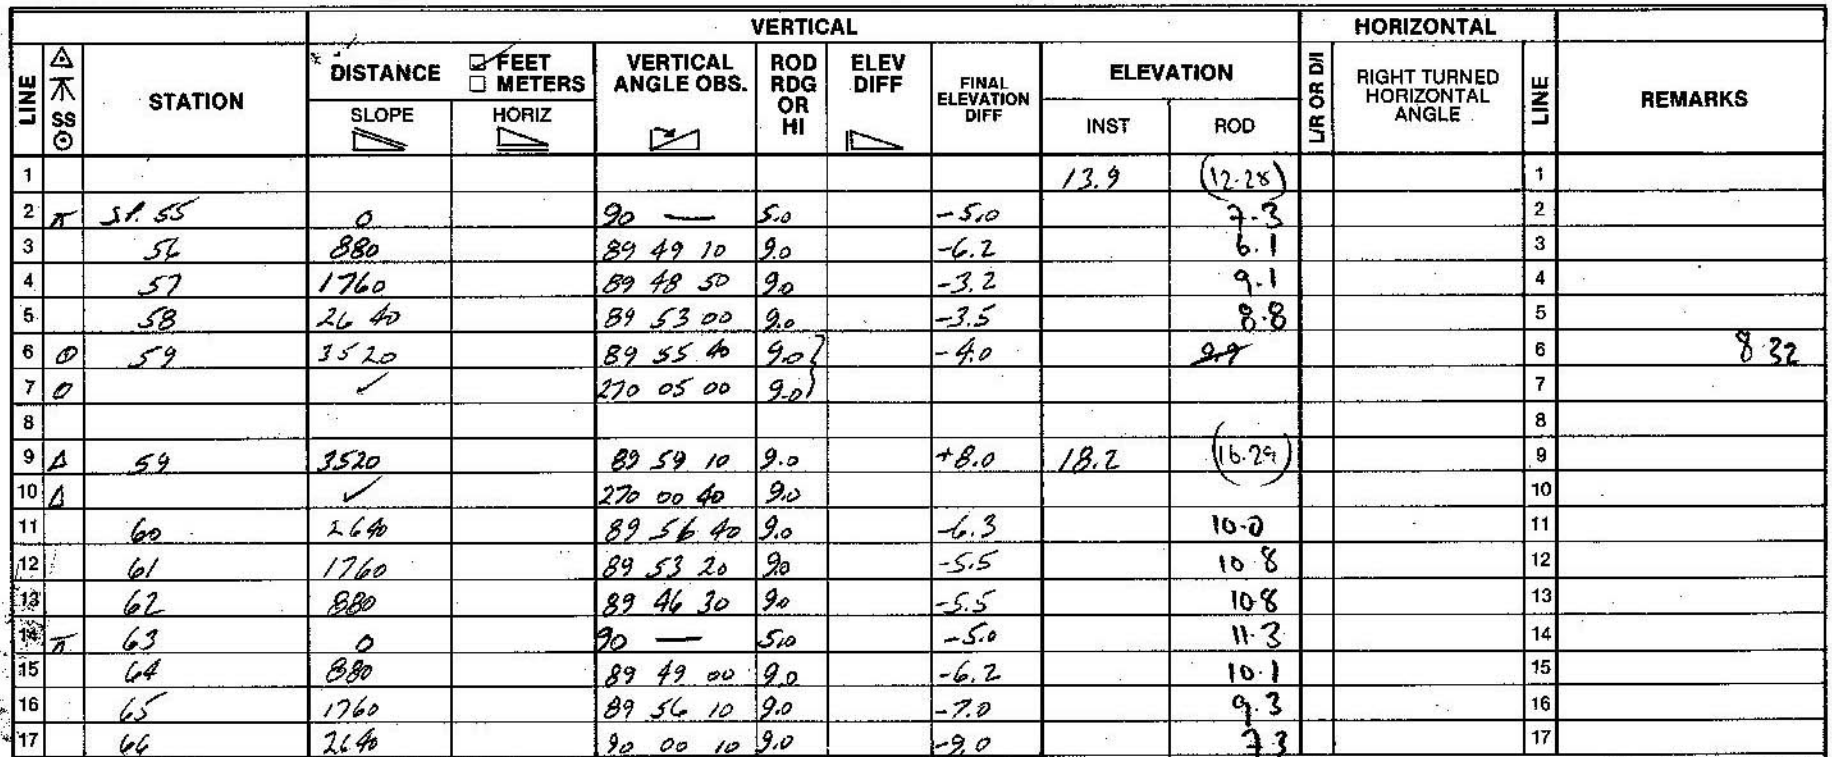 VERTICAL HORIZONTAL
LINE SS STATION DISTANCE FEET METERS VERTICAL ANGLE OBS. ROD RDG OR HI ELEV DIFF FINAL ELEVATION DIFF ELEVATION L/R OR D/I RIGHT TURNED HORIZONTAL ANGLE LINE REMARKS
SLOPE HORIZ INST ROD
1 13.9 (12.28) 1
2 SP. 55 0 90 — 5.0 -5.0 7.3 2
3 56 880 89 49 10 9.0 -6.2 6.1 3
4 57 1760 89 48 50 9.0 -3.2 9.1 4
5 58 2640 89 53 00 9.0 -3.5 8.8 5
6 59 3520 89 55 40 9.0 -4.0 6 8.32
7 ✓ 270 05 00 9.0 7
8 8
9 Δ 59 3520 89 59 10 9.0 +8.0 18.2 (16.29) 9
10 Δ ✓ 270 00 40 9.0 10
11 60 2640 89 56 40 9.0 -6.3 10.0 11
12 61 1760 89 53 20 9.0 -5.5 10.8 12
13 62 880 89 46 30 9.0 -5.5 10.8 13
14 63 0 90 — 5.0 -5.0 11.3 14
15 64 880 89 49 00 9.0 -6.2 10.1 15
16 65 1760 89 56 10 9.0 -7.0 9.3 16
17 66 2640 90 00 10 9.0 -9.0 7.3 17